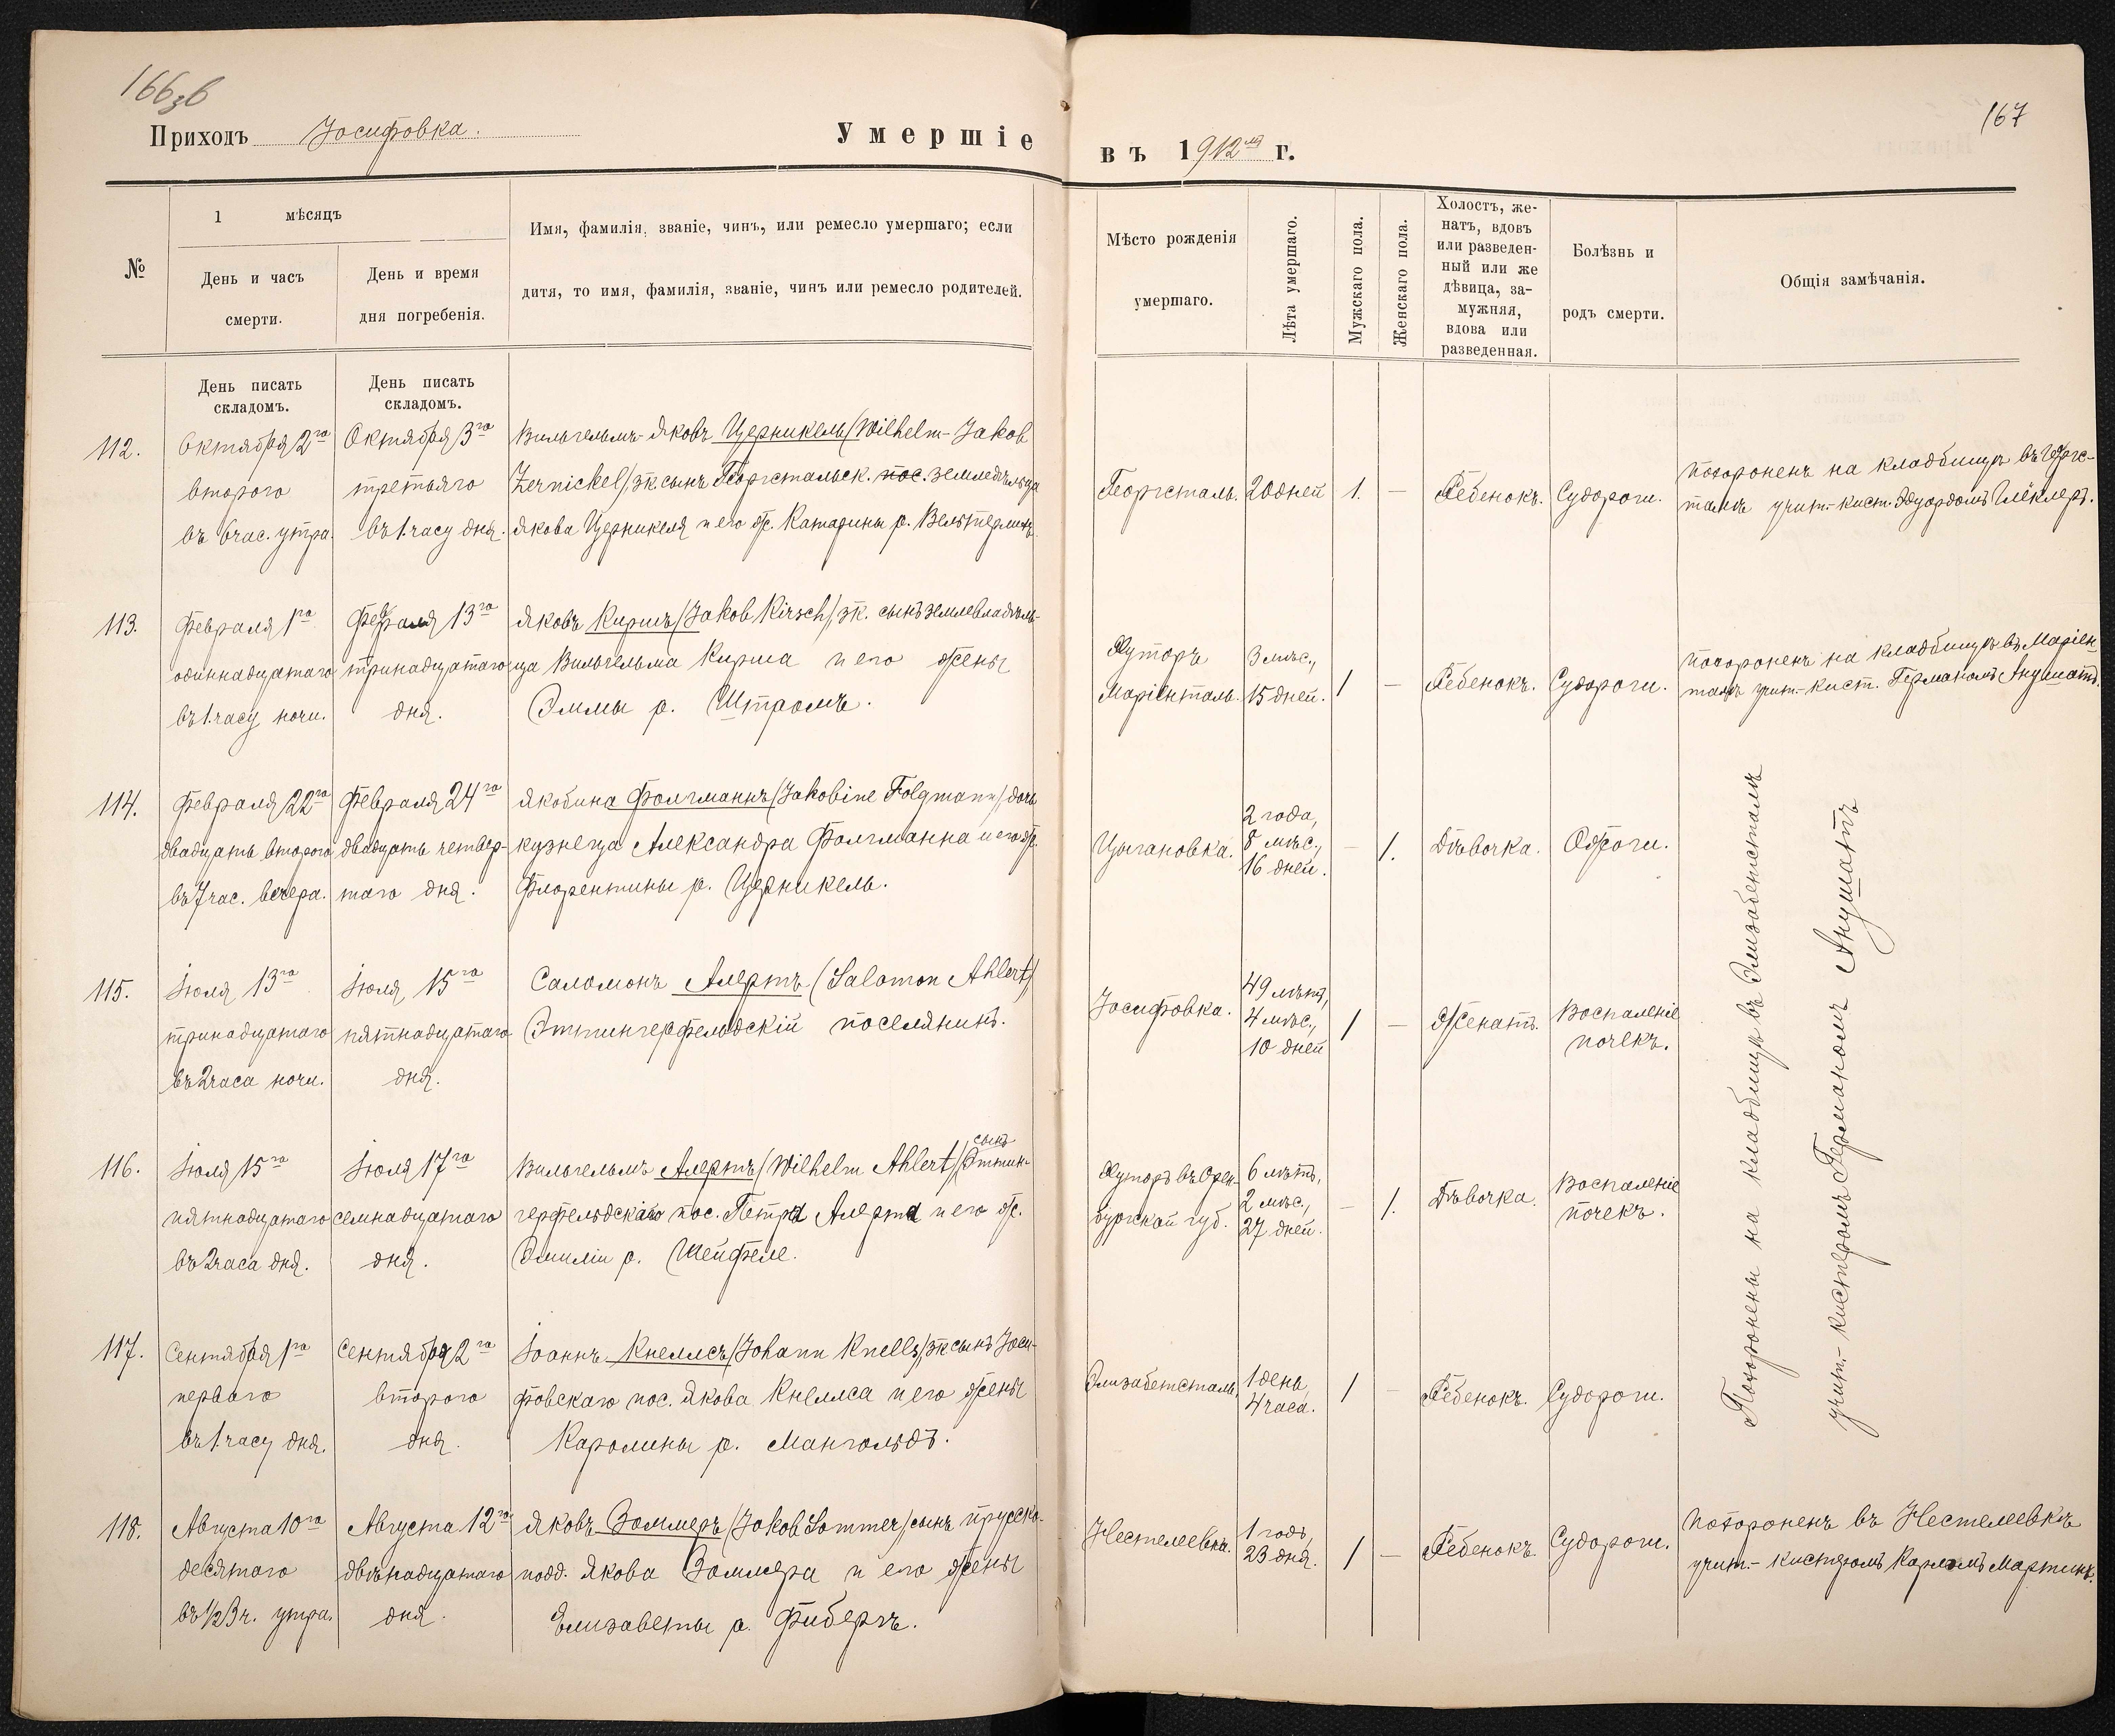 166 зв
167
Приходъ Іосифовка.
Умершіе
въ 1912 г.
№
1 мѣсяцъ
День и часъ
смерти.
День и время
дня погребенія.
Имя, фамилія, званіе, чинъ, или ремесло умершаго; если
дитя, то имя, фамилія, званіе, чинъ или ремесло родителей.
Мѣсто рожденія
умершаго.
Лѣта умершаго.
Мужскаго пола.
Женскаго пола.
Холостъ, же-
натъ, вдовъ
или разведен-
ный или же
дѣвица, за-
мужняя,
вдова или
разведенная.
Болѣзнь и
родъ смерти.
Общія замѣчанія.
День писать
складомъ.
День писать
складомъ.
112.
Октября 2го
второго
въ 6 час. утра.
Октября 3го
третьяго
въ 1 часу дня.
Вильгельмъ-Яковъ Церникель (Wilhelm-Jakob
Zernickel), зк. сынъ Георгстальск. пос. земледѣльца
Якова Церникеля и его ж. Катарины р.
Георгсталь.
20 дней
1.
—
Ребенокъ.
Судороги.
Похороненъ на кладбищѣ въ Георгс-
талѣ учит.-кист. Эдуардомъ
113.
Февраля
одиннадцатаго
въ 1 часу ночи.
Февраля 13го
тринадцатаго
дня.
Яковъ Киршъ (Jakob Kirsch), зк. сынъ землевладѣль-
ца Вильгельма Кирша и его жены
Эммы р. Штромъ.
Хуторъ
Маріенталь.
3 мѣс.,
15 дней.
1
—
Ребенокъ.
Судороги.
Похороненъ на кладбищѣ въ Маріен-
талѣ учит.-кист. Германомъ Аншатъ.
114.
Февраля 22го
двадцать второго
въ 7 час. вечера.
Февраля 24го
двадцать четвер-
таго дня.
Якобина Фолгманнъ (Jakobine Folgmann) дочь
кузнеца Александра Фолгманна и его ж.
Флорентины р. Церникель.
Цыгановка.
2 года,
8 мѣс.,
16 дней.
—
1.
Дѣвочка.
Ожоги.
Похоронены на кладбищѣ въ Элизабетсталѣ
учит.-кистеромъ Германомъ Аншатъ
115.
Іюля 13го
тринадцатаго
въ 2 часа ночи.
Іюля, 15го
пятнадцатаго
дня.
Саломонъ Алертъ (Salomon Ahlert)
Эттингерфельдскій поселянинъ.
Іосифовка.
49 лѣтъ,
4 мѣс.,
10 дней
1
—
Женатъ.
Воспаленіе
почекъ.
116.
Іюля 15го
пятнадцатаго
въ 2 часа дня.
Іюля 17го
семнадцатаго
дня.
сынъ
Вильгельмъ Алертъ (Wilhelm Ahlert) Эттин-
герфельдскаго пос. Петра Алерта и его ж.
Эмиліи р. Шейфеле.
Хуторъ въ Орен-
бургской губ.
6 лѣтъ,
2 мѣс.,
27 дней.
—
1.
Дѣвочка.
Воспаленіе
почекъ.
117.
Сентября 1го
перваго
въ 1 часу дня.
Сентября 2го
второго
дня.
Іоаннъ Кнеллсъ (Johann Knells), зк сынъ Іоси-
фовскаго пос. Якова Кнеллса и его жены
Каролины р. Мангольдъ.
Элизабетсталь.
1 день,
4 часа.
1
—
Ребенокъ.
Судороги.
118.
Августа 10го
десятаго
въ ½ 3 ч. утра.
Августа 12го
двѣнадцатаго
дня.
Яковъ Зоммеръ (Jakob Sommer) сынъ прусско-
подд. Якова Зоммера и его жены
Елизаветы р. Фибергъ.
Нестелеевка.
1 годъ,
23 дня.
1
—
Ребенокъ.
Судороги.
Похороненъ въ Нестелеевкѣ
учит.-кистеромъ Карломъ Мартинъ.